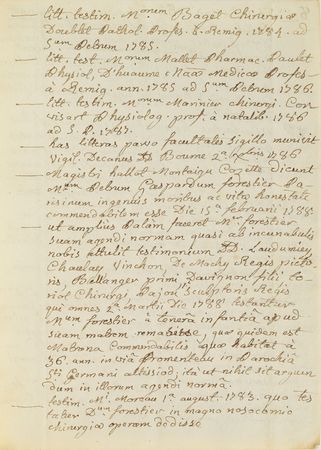 litt. testim. M.orum Baget Chirurgiæ
Doublet Pathol. Profess. à Remig. 1784. ad
S.um Petrum 1785.
litt. test. M.orum Mallet Pharmac. Paulet
Physiol, D'huaume Medicæ Profess-
à Remig. ann. 1785 ad S.um Petrum 1786.
litt. testim. M.orum Marinier chirurgi. Cor-
visart Physiolog. prof. à natalib. 1786
ad S. P. 1787.
has litteras parvo facultatis sigillo munivit
Vigil. Decanus D. Bourne 2.a 1786
Magistri hallot Montaigu Cozette dicunt
M.um Petrum Gaspardum forestier Pa-
risinum ingenuis moribus ac vitæ honestate
commendabilem esse Die 15.a februarii 1788.
ut amplius Palam faceret M. forestier
suam agendi normam quasi ab incunabulis
nobis attulit testimonium DD. Laudumiey
Chaulay Vinchon, De Machy Regis picto-
ris, Ballanger primi Davignon filii to-
rial Chirurgi, Pajou sculptoris Regis
qui omnes 2.a Martii Die 1788 testantur
M.um forestier à tenerâ infantiâ apud
suam matrem remansisse, quæ quidem est
Matrona commendabilis quæ habitat à
36. ann. in viâ Fromenteau in Parochiâ
S.ti Germani altissiod; ità ut nihil sit arguen-
dum in illorum agendi normâ.
testim. M.i Moreau 1.a august. 1783. quo tes
tatur D.um forestier in magno nosocomio
chirurgiæ operam dedisse